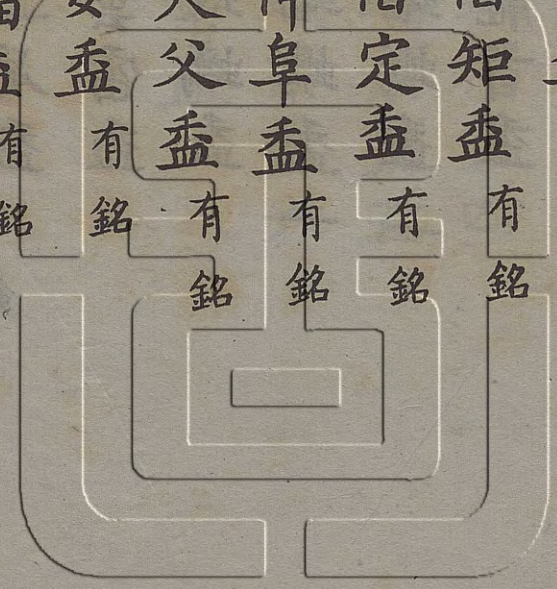 矩盉有銘
定盉有銘
阜盉有銘
父盉有銘
盉有銘
盉有銘